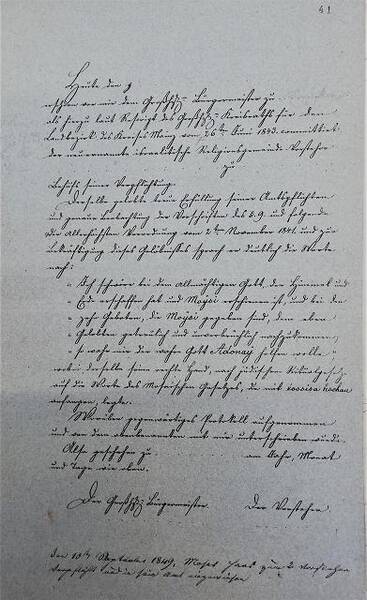 41
Heute den
erschien vor mir dem Großhzl. Bürgermeister zu
als hierzu laut Rescript des Großhzl. Kreisraths für den
Landbezirk des Kreises Mainz vom 26ten Juni 1843 committirt
der neuernannte israelitische Religionsgemeinde Vorsteher
zu
Behufs seiner Verpflichtung.
Derselbe gelobte treue Erfüllung seiner Amtspflichten
und genaue Beobachtung der Vorschriften des § 9. und folgende
der Allerhöchsten Verordnung vom 2ten November 1841 und zur
Bekräftigung dieses Gelübnisses sprach er deutlich die Worte
nach:
"Ich schwöre bei dem Allmächtigen Gott, der Himmel und
" Erde erschaffen hat und Moysi erschienen ist, und bei den
" zehn Geboten, die Moysi gegeben sind, dem eben
" Gelobten getreulich und unverbrüchlich nachzukommen,
" so wahr mir der wahre Gott Adonay helfen wolle "
wobei derselbe seine rechte Hand, nach jüdischem Ritualgesetz
auf die Worte des Mosaischen Gesetzes, die mit
anfangen, legte.
Worüber gegenwärtiges Protokoll aufgenommen
und von dem obenbenannten mit mir unterschrieben wurde.
Also geschehen zu am Jahr, Monat
und Tage wie oben.
Der Großhzl. Bürgermeister. Der Vorsteher.
den 10ten September 1849, Moses Haas zum 2. Vorsteher
verpflichtet und in sein Amt eingewiesen